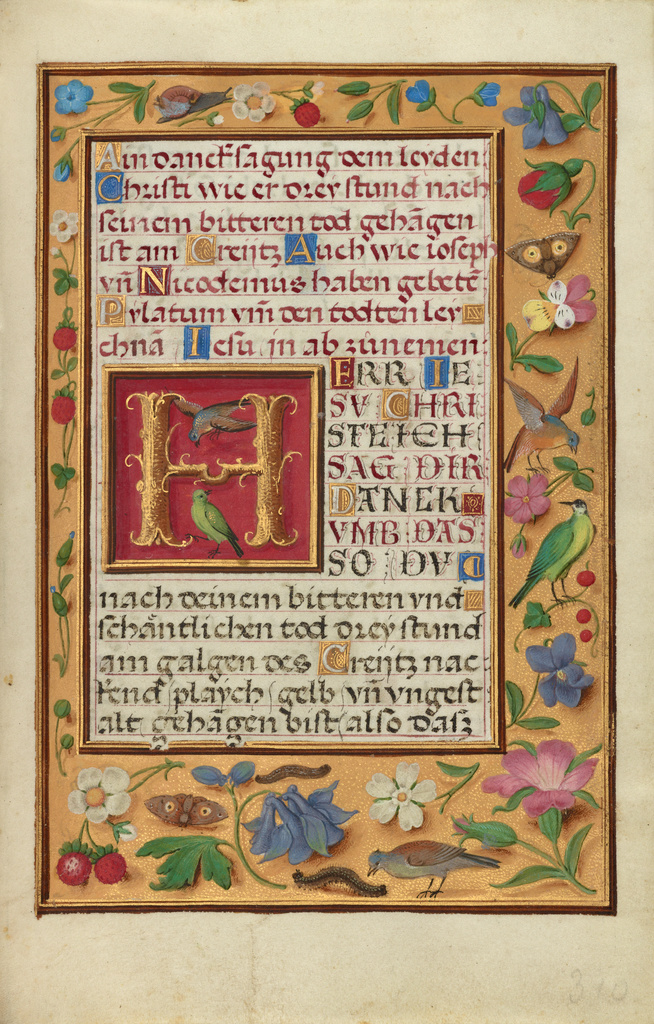 Ain danckſagung dem leyden
Chriſti wie er drey ſtund nach
ſeinem bitteren tod gehāgen
iſt am Creijtz Auch wie ioſeph
vn̄ Nicodemus haben gebetē
Pylatum vm̄ den todten ley
chnā Ieſu jn ab zůnemen:
HERR IE
SV CHRI
STE ICH
SAG DIR
DANCK
VMB DAS
SO DV
nach deinem bitteren vnd
ſchāntlichen tod drey ſtund
am galgen des Creijtz nac-
kend playch gelb vn̄ vngeſt
alt gehāgen biſt alſo daſz
310